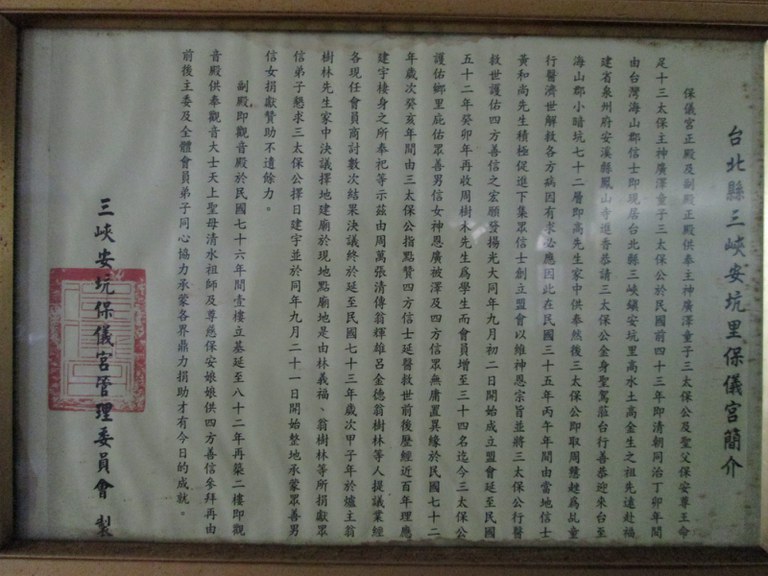 台北縣三峽安坑里保儀宮簡介
保儀宮正殿及副殿正殿供奉主神廣澤童子三太保公及聖父保安尊王命
足十三太保主神廣澤童子三太保公於民國前四十三年即清朝同治丁卯年間
由台灣海山郡信士即現居台北縣三峽鎮安坑里高水土高金生之祖先遠赴福
建省泉州府安溪縣鳳山寺進香恭請三太保公金身聖駕蒞台行善恭迎來台至
海山郡小暗坑七十二層即高先生家中供奉然後三太保公即取周戇趖為乩童
行醫濟世解救各方病因有求必應因此在民國三十五年丙午年間由當地信士
黃和尚先生積極促進下集眾信士創立盟會以維神恩宗旨並將三太保公行醫
救世護佑四方善信之宏願發揚光大同年九月初二日開始成立盟會延至民國
五十二年癸卯年再收周樹木先生為學生而會員增至三十四名迄今三太保公
護佑鄉里庇佑眾善男信女神恩廣被澤及四方信眾無庸置異緣於民國七十二
年歲次癸亥年間由三太保公指點贊四方信士延醫救世前後歷經近百年理應
建宇棲身之所奉祀等示茲由周萬張清傳翁輝雄呂金德翁樹林等人提議業經
各現任會員商討數次結果決議終於延至民國七十三年歲次甲子年於爐主翁
樹林先生家中決議擇地建廟於現地點廟地是由林義福、翁樹林等所捐獻眾
信弟子懇求三太保公擇日建宇並於同年九月二十一日開始整地承蒙眾善男
信女捐獻贊助不遺餘力。
副殿即觀音殿於民國七十六年間壹樓立基延至八十二年再築二樓即觀
音殿供奉觀音大士天上聖母清水祖師及尊慈保安娘娘供四方善信參拜再由
前後主委及全體會員弟子同心協力承蒙各界鼎力捐助才有今日的成就。
三峽安坑保儀宮管理委員會 製